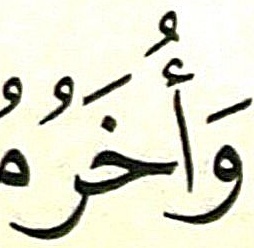 وَأُخَرُهُ